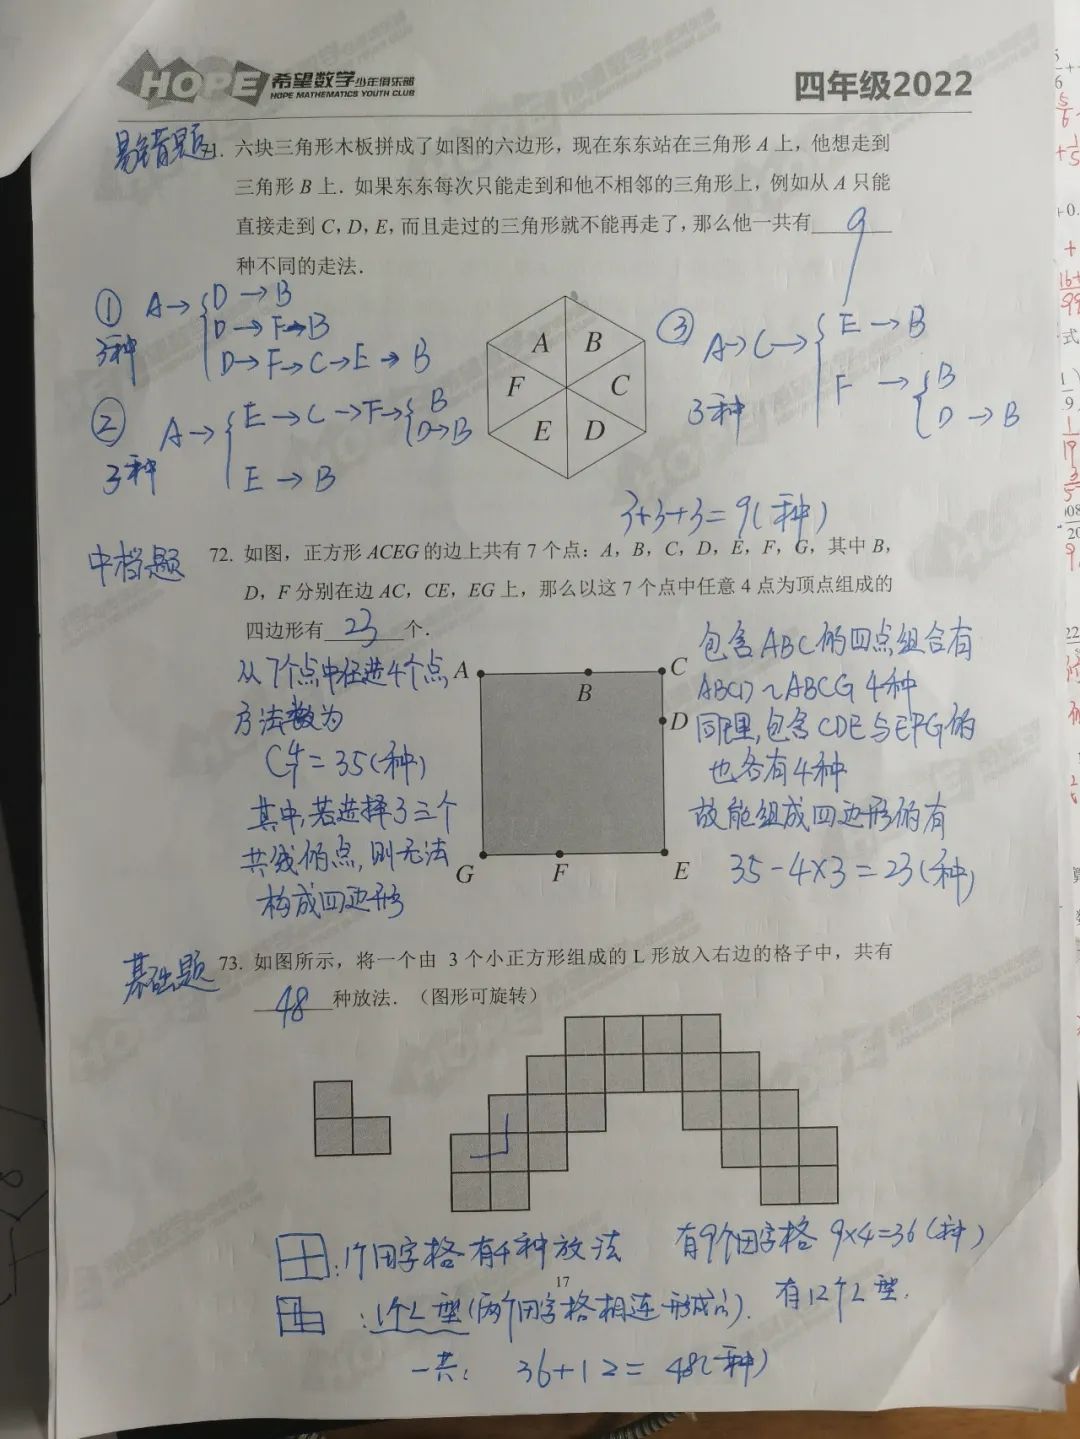 HOPE 希望数学少年俱乐部
HOPE MATHEMATICS YOUTH CLUB
四年级2022
易错题
71. 六块三角形木板拼成了如图的六边形，现在东东站在三角形 A 上，他想走到
三角形 B 上．如果东东每次只能走到和他不相邻的三角形上，例如从 A 只能
直接走到 C, D, E, 而且走过的三角形就不能再走了，那么他一共有 9
种不同的走法．
① A→ D→B
3种 D→F→B
D→F→C→E→B
② A→ E→C→F→ B
D→B
3种 E→B
③ A→C→ E→B
3种 F→ B
D→B
A B
F C
E D
3+3+3=9(种)
中档题
72. 如图，正方形 ACEG 的边上共有 7 个点：A，B，C，D，E，F，G，其中 B，
D，F 分别在边 AC，CE，EG 上，那么以这 7 个点中任意 4 点为顶点组成的
四边形有 23 个．
从7个点中任选4个点
方法数为
C⁴₇=35(种)
其中,若选择了三个
共线的点,则无法
构成四边形
A B C
D
G F E
包含ABC的四点组合有
ABCD~ABCG 4种
同理,包含CDE与EFG的
也各有4种
故能组成四边形的有
35-4×3=23(种)
基础题
73. 如图所示，将一个由 3 个小正方形组成的 L 形放入右边的格子中，共有
48 种放法．（图形可旋转）
:1个田字格有4种放法 有9个田字格 9×4=36(种)
17
:1个L型(两个田字格相连形成的). 有12个L型.
一共: 36+12=48(种)